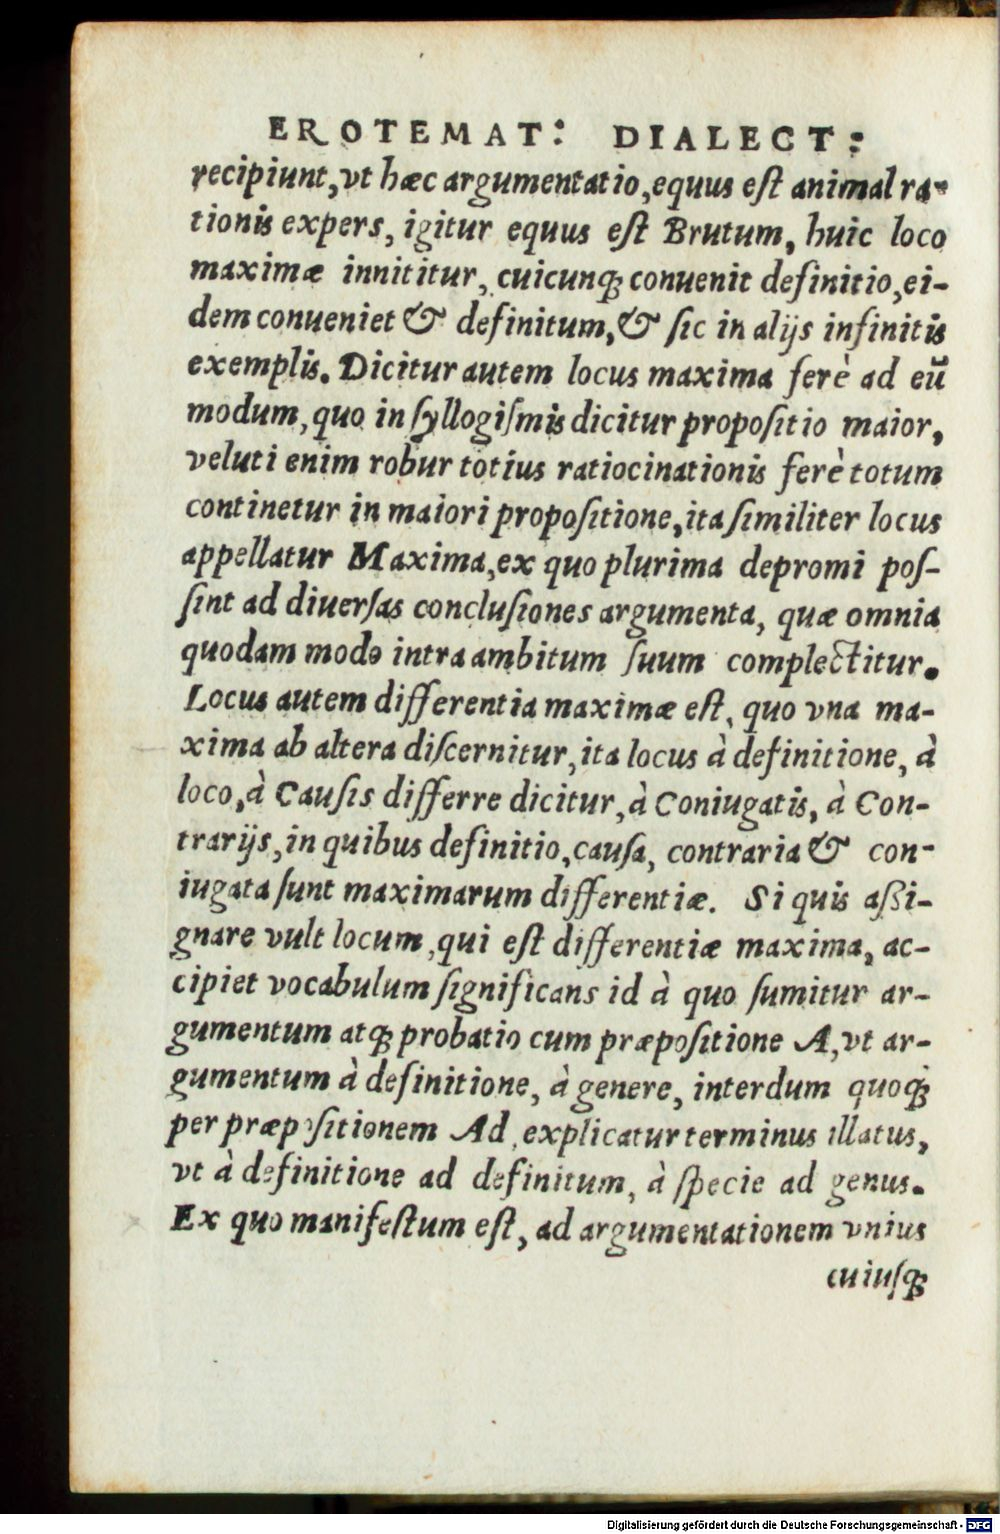 EROTEMAT: DIALECT:
recipiunt,vt hæc argumentatio,equus eſt animal ra-
tionis expers, igitur equus eſt Brutum, huic loco
maximæ innititur, cuicunq; conuenit definitio,ei-
dem conueniet & definitum,& ſic in alijs infinitis
exemplis. Dicitur autem locus maxima ferè ad eũ
modum,quo in ſyllogiſmis dicitur propoſitio maior,
veluti enim robur totius ratiocinationis ferè totum
continetur in maiori propoſitione,ita ſimiliter locus
appellatur Maxima,ex quo plurima depromi poſ-
ſint ad diuerſas concluſiones argumenta, quæ omnia
quodam modo intra ambitum ſuum complectitur.
Locus autem differentia maximæ eſt, quo vna ma-
xima ab altera diſcernitur,ita locus à definitione, à
loco,à Cauſis differre dicitur,à Coniugatis, à Con-
trarijs,in quibus definitio,cauſa, contraria & con-
iugata ſunt maximarum differentiæ. Si quis aßi-
gnare vult locum,qui eſt differentiæ maxima, ac-
cipiet vocabulum ſignificans id à quo ſumitur ar-
gumentum atq; probatio cum præpoſitione A,vt ar-
gumentum à definitione, à genere, interdum quoq;
per præpoſitionem Ad explicatur terminus illatus,
vt à definitione ad definitum, à ſpecie ad genus.
Ex quo manifeſtum eſt, ad argumentationem vnius
cuiuſq;
Digitalisierung gefördert durch die Deutsche Forschungsgemeinschaft - DFG